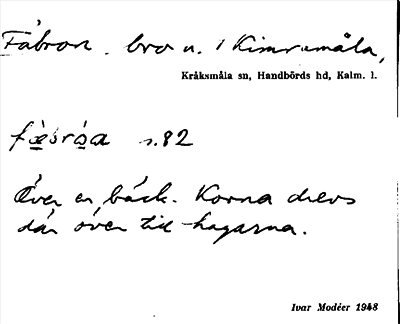 Fäbron, bro n. i Kimramåla,
Kråksmåla sn, Handbörds hd, Kalm. l.
s. 82
Över en bäck. Korna drevs
där över till hagarna.
Ivar Modéer 1948